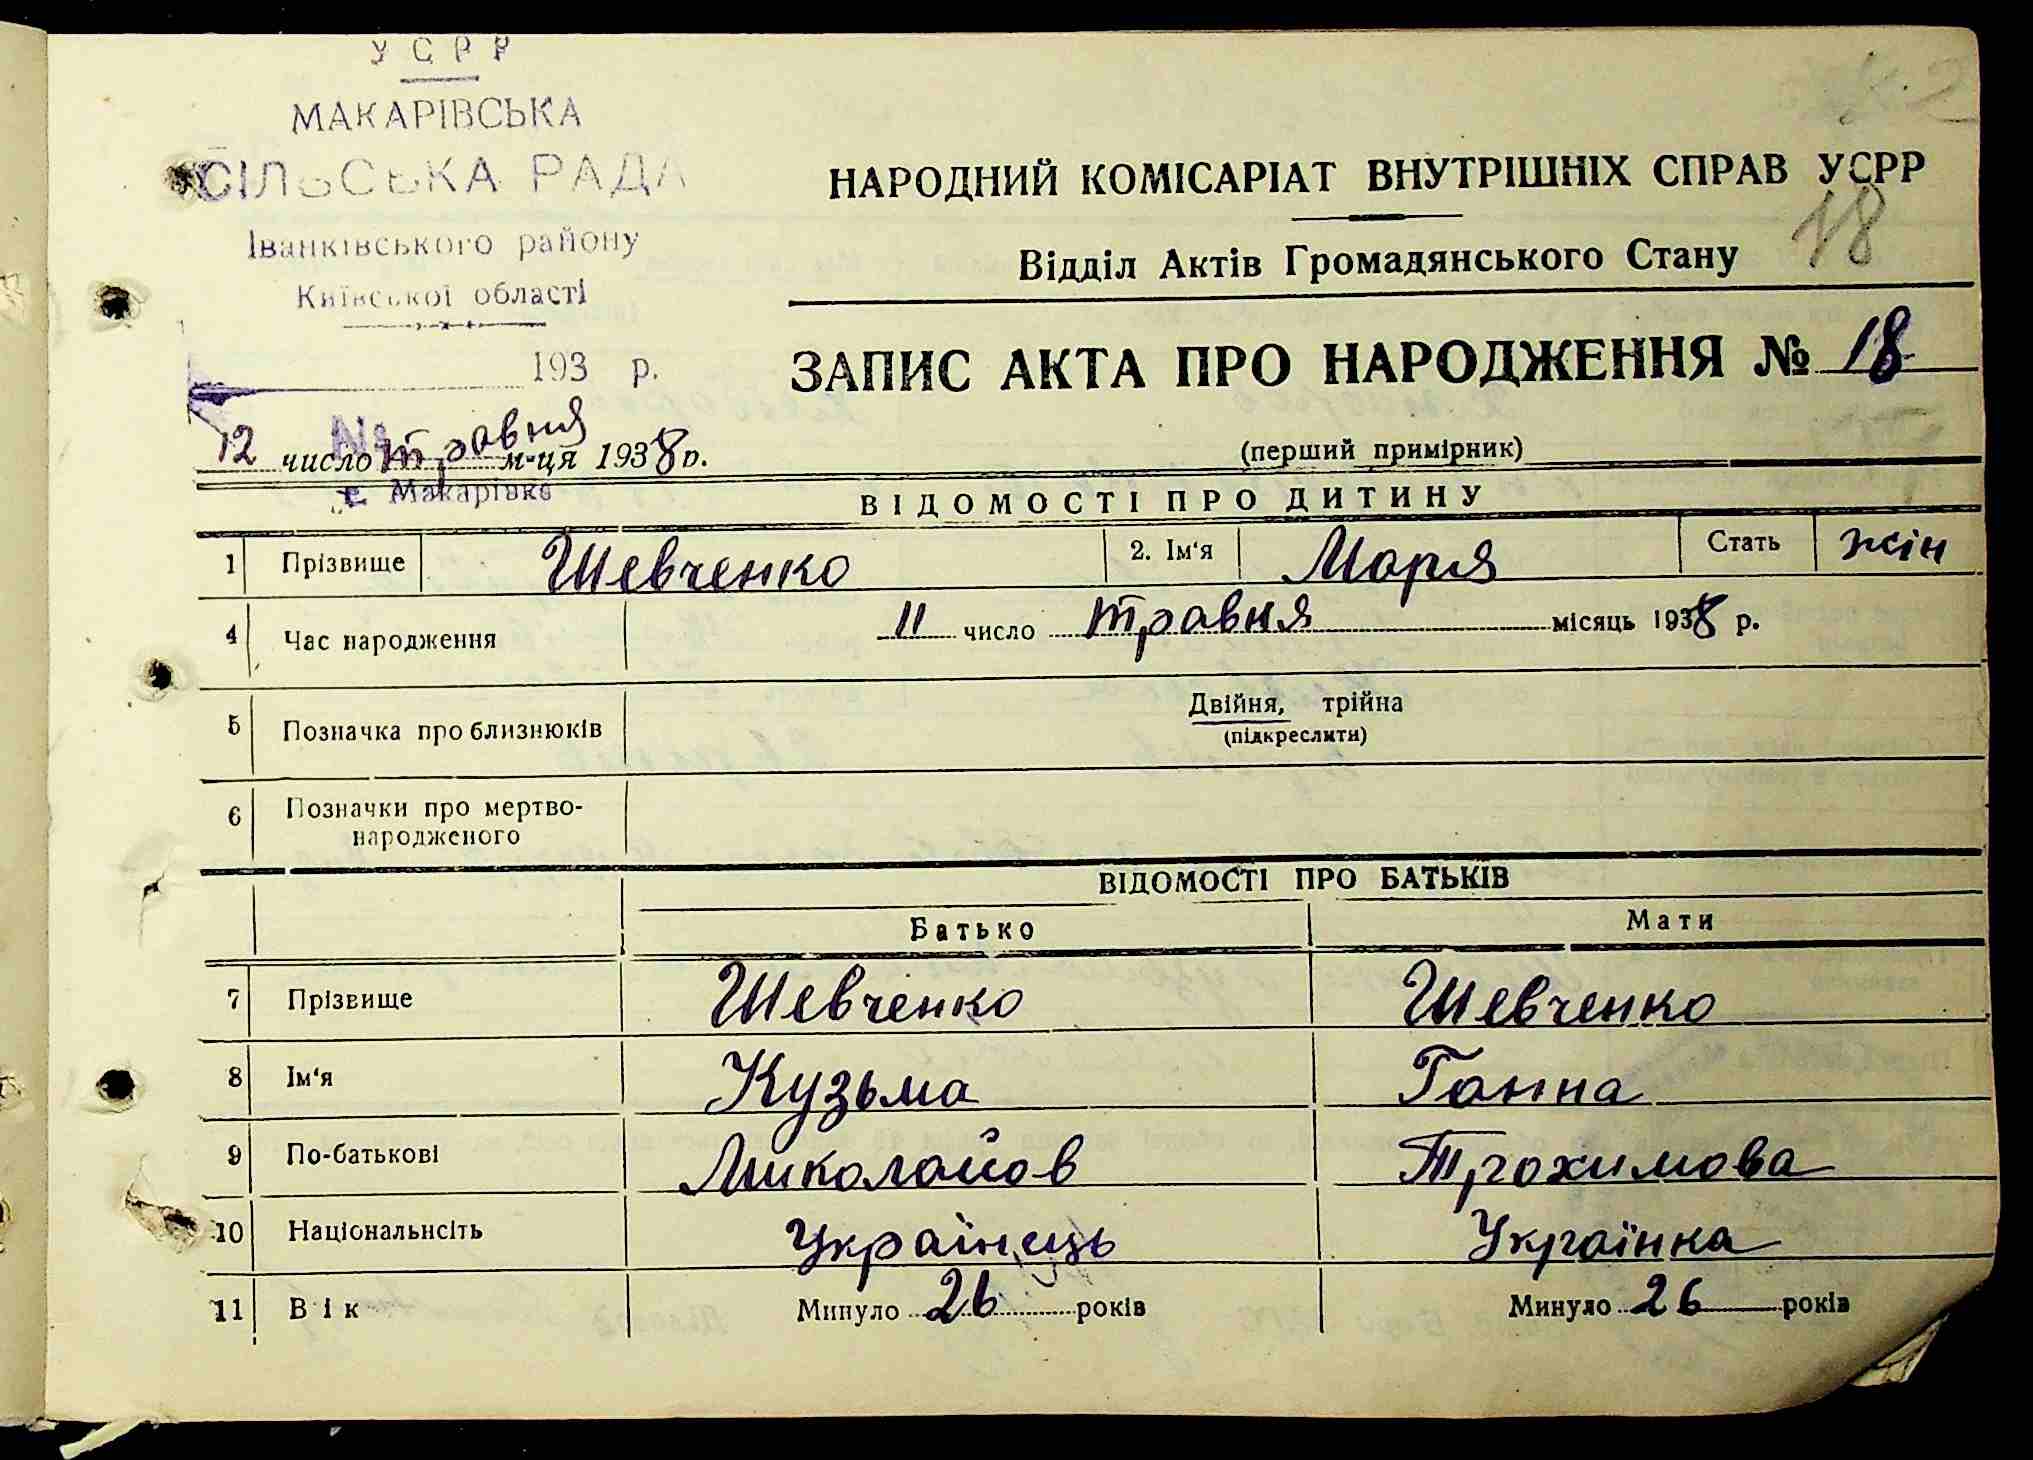 УСРР
МАКАРІВСЬКА
СІЛЬСЬКА РАДА
Іванківського району
Київської області
193 р.
№
с. Макарівка
12 число травня м-ця 1938 р.
НАРОДНИЙ КОМІСАРІАТ ВНУТРІШНІХ СПРАВ УСРР
18
Відділ Актів Громадянського Стану
ЗАПИС АКТА ПРО НАРОДЖЕННЯ № 18
(перший примірник)
ВІДОМОСТІ ПРО ДИТИНУ
1 Прізвище Шевченко 2. Ім'я Марія Стать жін
4 Час народження 11 число травня місяць 1938 р.
5 Позначка про близнюків Двійня, трійна
(підкреслити)
6 Позначки про мертво-
народженого
ВІДОМОСТІ ПРО БАТЬКІВ
Батько Мати
7 Прізвище Шевченко Шевченко
8 Ім'я Кузьма Ганна
9 По-батькові Миколайов Трохимова
10 Національнсіть Українець Українка
11 Вік Минуло 26 років Минуло 26 років